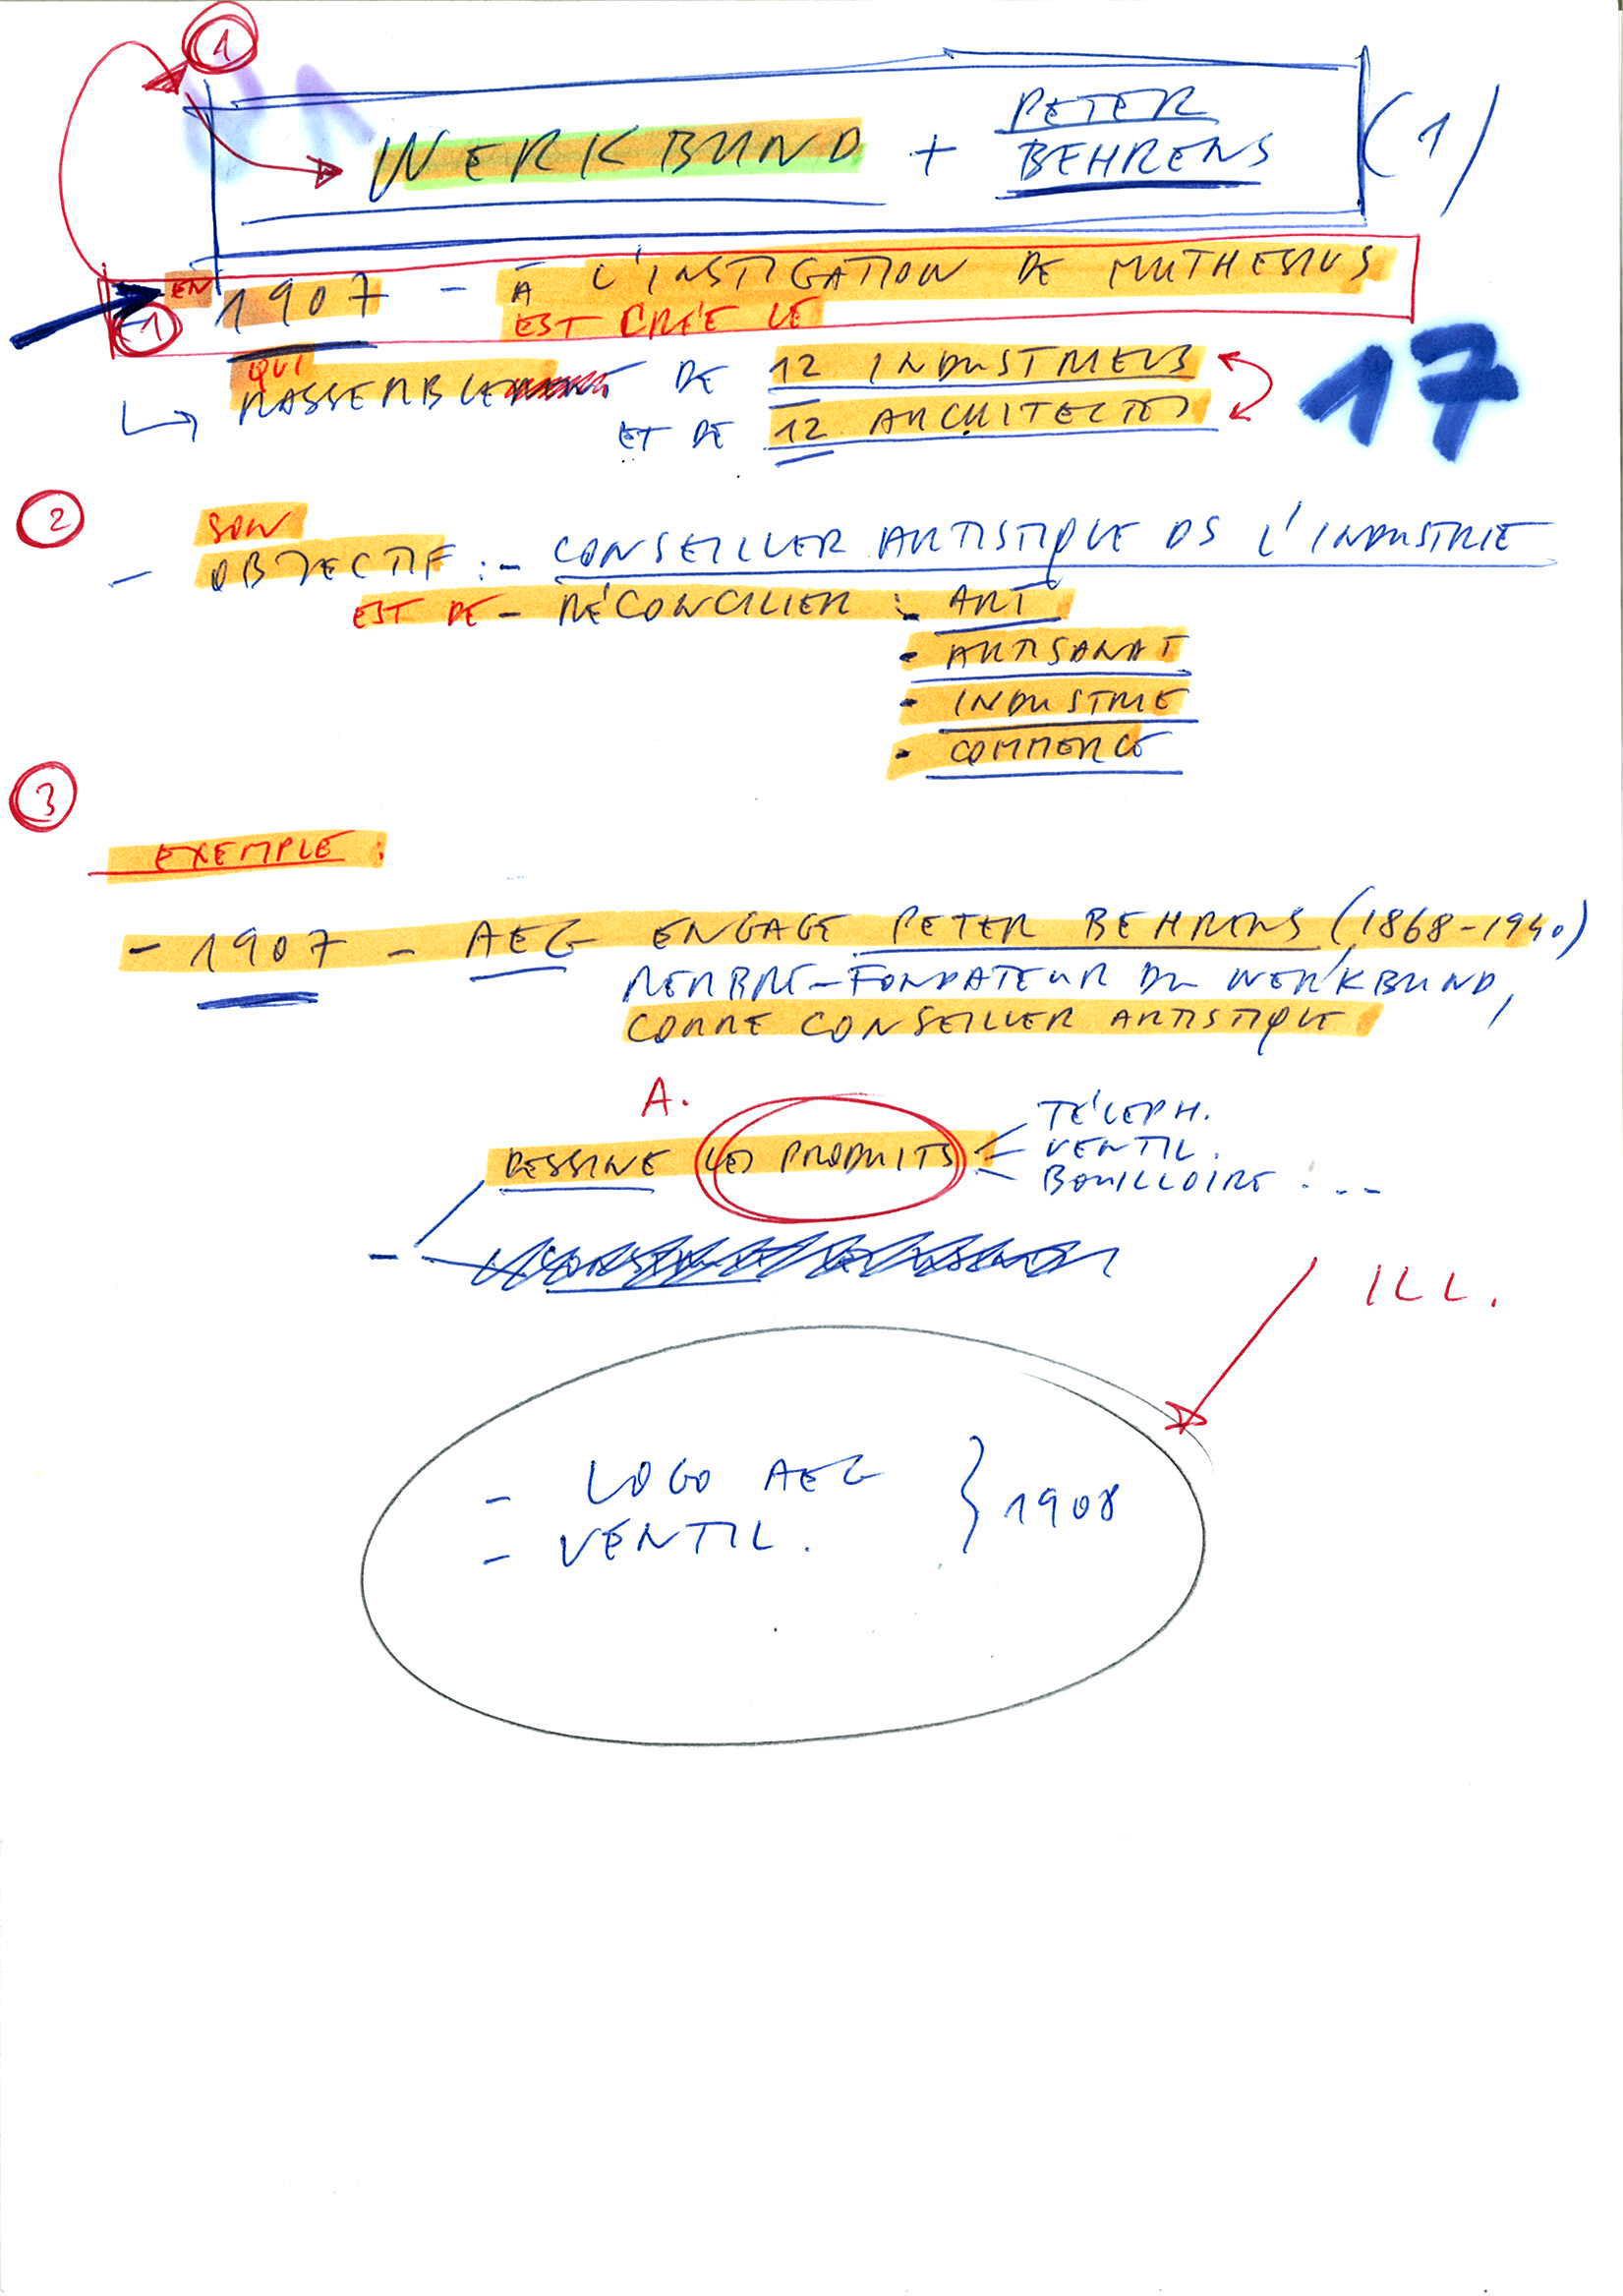 1
WERKBUND + PETER BEHRENS (1)
EN 1907 - À L'INSTIGATION DE MUTHESIUS
1 EST CRÉE LE
QUI
RASSEMBLE DE 12 INDUSTRIELS
ET DE 12 ARCHITECTES
17
2
SON
- OBJECTIF : - CONSEILLER ARTISTIQUE DS L'INDUSTRIE
EST DE - RÉCONCILIER : - ART
- ARTISANAT
- INDUSTRIE
- COMMERCE
3
EXEMPLE :
- 1907 - AEG ENGAGE PETER BEHRENS (1868-1940)
MEMBRE-FONDATEUR DU WERKBUND,
COMME CONSEILLER ARTISTIQUE
A.
TÉLEPH.
DESSINE LES PRODUITS VENTIL.
BOUILLOIRE . . .
ILL.
- LOGO AEG
- VENTIL. } 1908